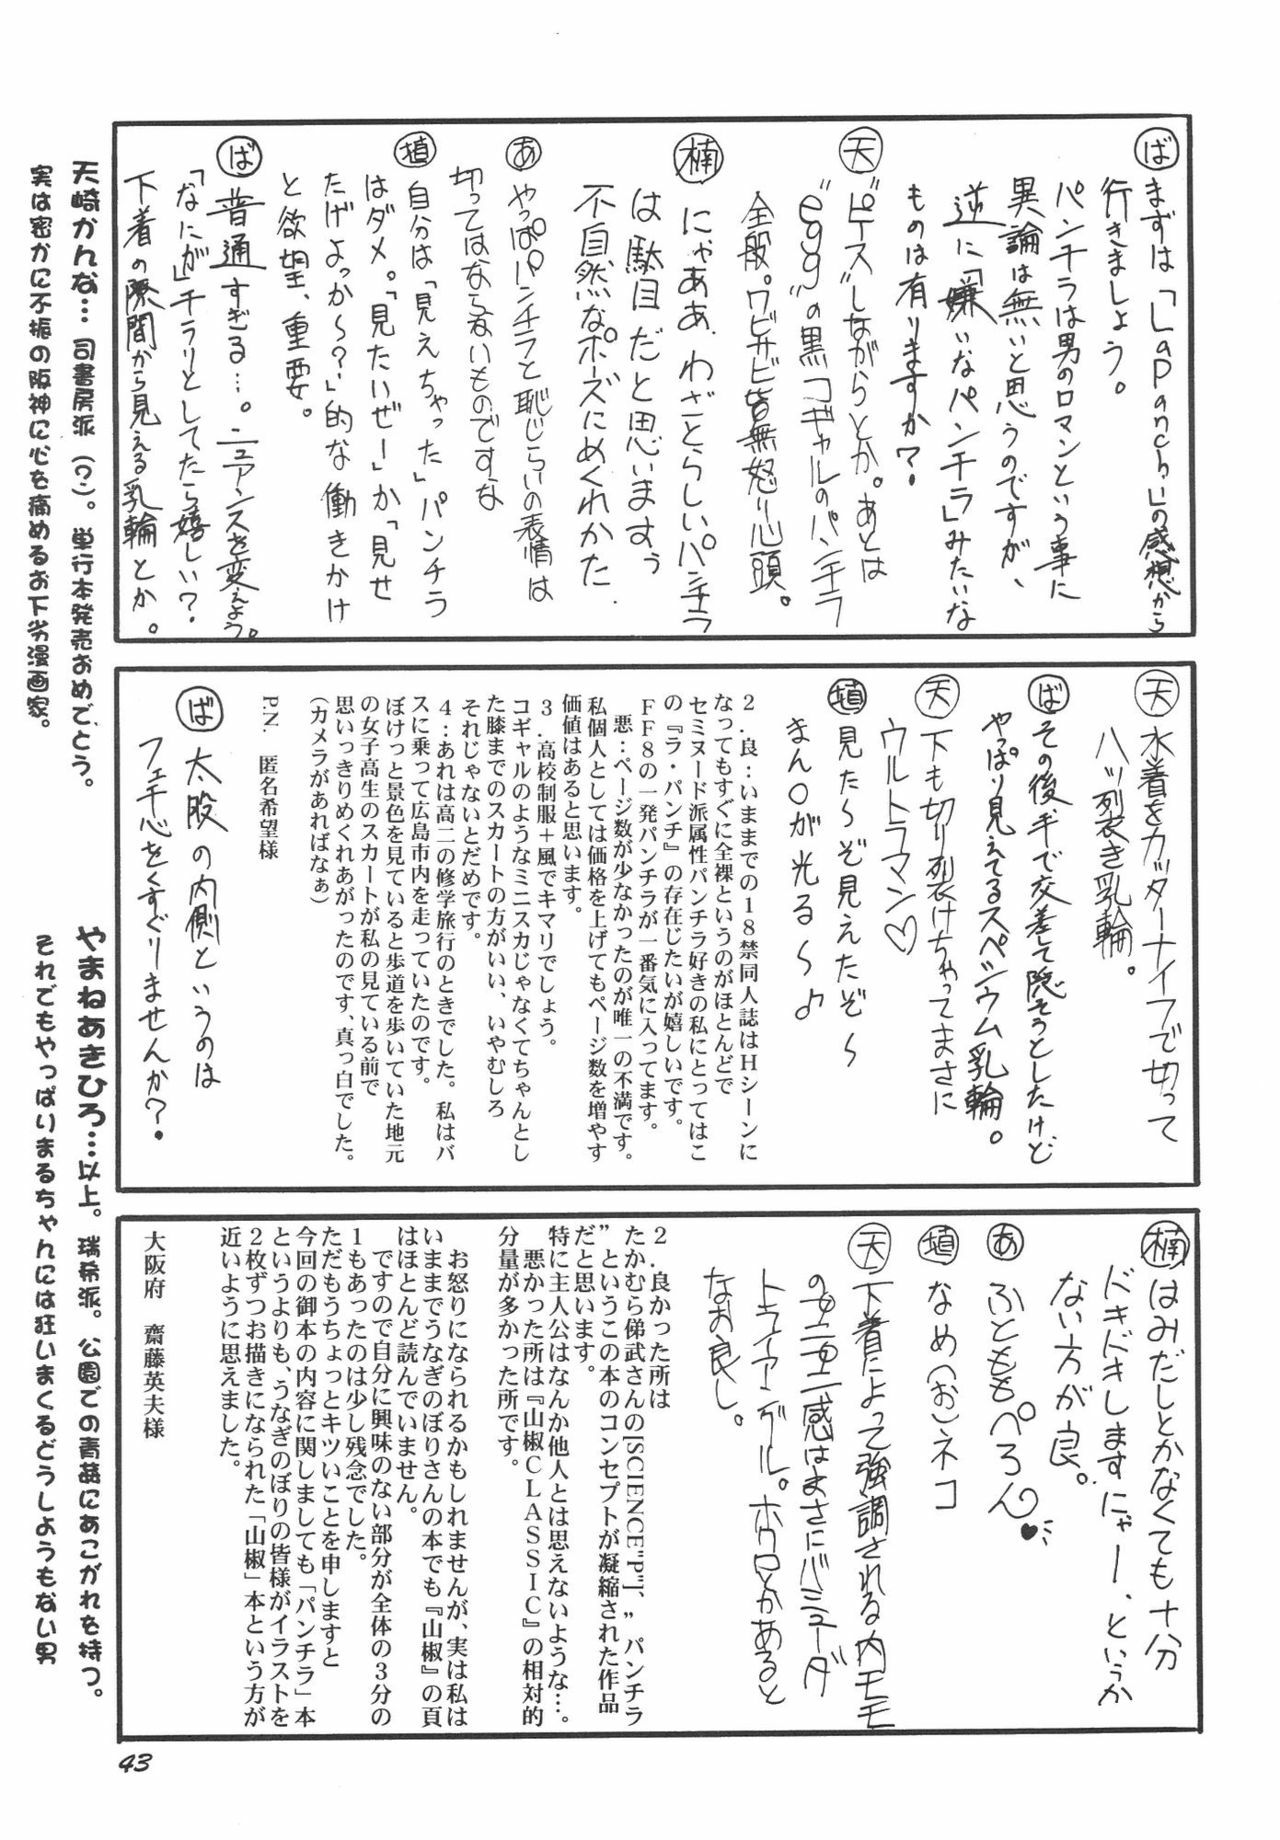 ば まずは「La Panch」の感想から
行きましょう。
パンチラは男のロマンという事に
異論は無いと思うのですが、
逆に「嫌いなパンチラ」みたいな
ものは有りますか？
天 "ピース"しながらとか。あとは
"egg"の黒コギャルのパンチラ
全般。ワビサビ皆無怒り心頭。
楠 にゃああ、わざとらしいパンチラ
は駄目だと思いますぅ
不自然なポーズにめくれかた
あ やっぱパンチラと恥じらいの表情は
切ってはならないものですな
埴 自分は「見えちゃった」パンチラ
はダメ。「見たいぜー」か「見せ
たげよっか～？」的な働きかけ
と欲望、重要。
ば 普通すぎる…。ニュアンスを変えよう。
「なにが」チラリとしてたら嬉しい？
下着の隙間から見える乳輪とか。
天 水着をカッターナイフで切って
八ッ裂き乳輪。
ば その後手で交差して隠そうとしたけど
やっぱり見えてるスペシウム乳輪。
天 下も切り裂けちゃってまさに
ウルトラマン♡
埴 見たーぞ見えたぞ～
まん○が光る～♪
２．良：いままでの１８禁同人誌はＨシーンに
なってもすぐに全裸というのがほとんどで
セミヌード派属性パンチラ好きの私にとってはこ
の『ラ・パンチ』の存在じたいが嬉しいです。
ＦＦ８の一発パンチラが一番気に入ってます。
悪：ページ数が少なかったのが唯一の不満です。
私個人としては価格を上げてもページ数を増やす
価値はあると思います。
３．高校制服＋風でキマリでしょう。
コギャルのようなミニスカじゃなくてちゃんとし
た膝までのスカートの方がいい、いやむしろ
それじゃないとだめです。
４：あれは高二の修学旅行のときでした。私はバ
スに乗って広島市内を走っていたのです。
ぼけっと景色を見ていると歩道を歩いていた地元
の女子高生のスカートが私の見ている前で
思いっきりめくれあがったのです、真っ白でした。
（カメラがあればなぁ）
P.N.　匿名希望様
ば 太股の内側というのは
フェチ心をくすぐりませんか？
楠 はみだしとかなくても十分
ドキドキしますにゃー、というか
ない方が良。
あ ふとももぺろん♥
埴 なめ（お）ネコ
天 下着によって強調される内モモ
のプニプニ感はまさにバミューダ
トライアングル。ホクロとかあると
なお良し。
２．良かった所は
たかむら俤武さんの[SCIENCE"P"]、〟パンチラ
〟というこの本のコンセプトが凝縮された作品
だと思います。
特に主人公はなんか他人とは思えないような…。
悪かった所は『山椒ＣＬＡＳＳＩＣ』の相対的
分量が多かった所です。
お怒りになられるかもしれませんが、実は私は
いままでうなぎのぼりさんの本でも『山椒』の頁
はほとんど読んでいません。
ですので自分に興味のない部分が全体の３分の
１もあったのは少し残念でした。
ただもうちょっとキツいことを申しますと
今回の御本の内容に関しましても「パンチラ」本
というよりも、うなぎのぼりの皆様がイラストを
２枚ずつお描きになられた「山椒」本という方が
近いように思えました。
大阪府　齋藤英夫様
天崎かんな… 司書房派（？）。単行本発売おめでとう。
実は密かに不振の阪神に心を痛めるお下劣漫画家。
やまねあきひろ…以上。瑞希派。公園での青姦にあこがれを持つ。
それでもやっぱりまるちゃんには狂いまくるどうしようもない男
43